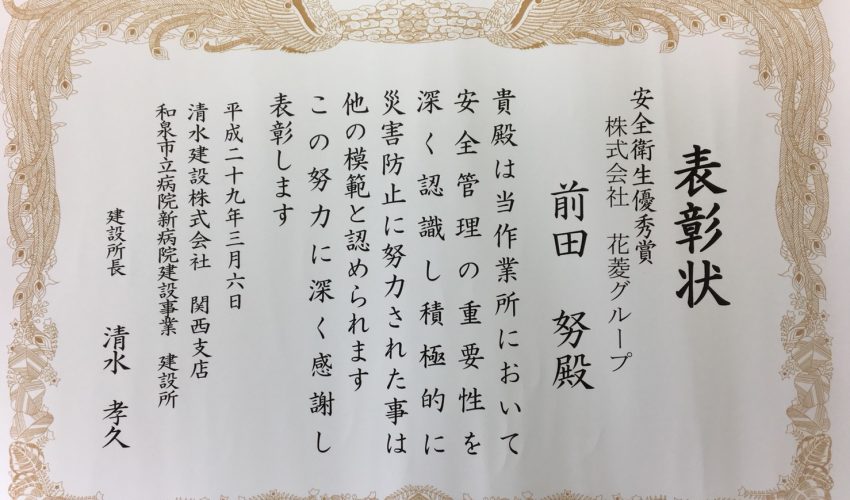 表彰状
安全衛生優秀賞
株式会社 花菱グループ
前田 努殿
貴殿は当作業所において
安全管理の重要性を
深く認識し積極的に
災害防止に努力された事は
他の模範と認められます
この努力に深く感謝し
表彰します
平成二十九年三月六日
清水建設株式会社 関西支店
和泉市立病院新病院建設事業 建設所
建設所長 清水 孝久